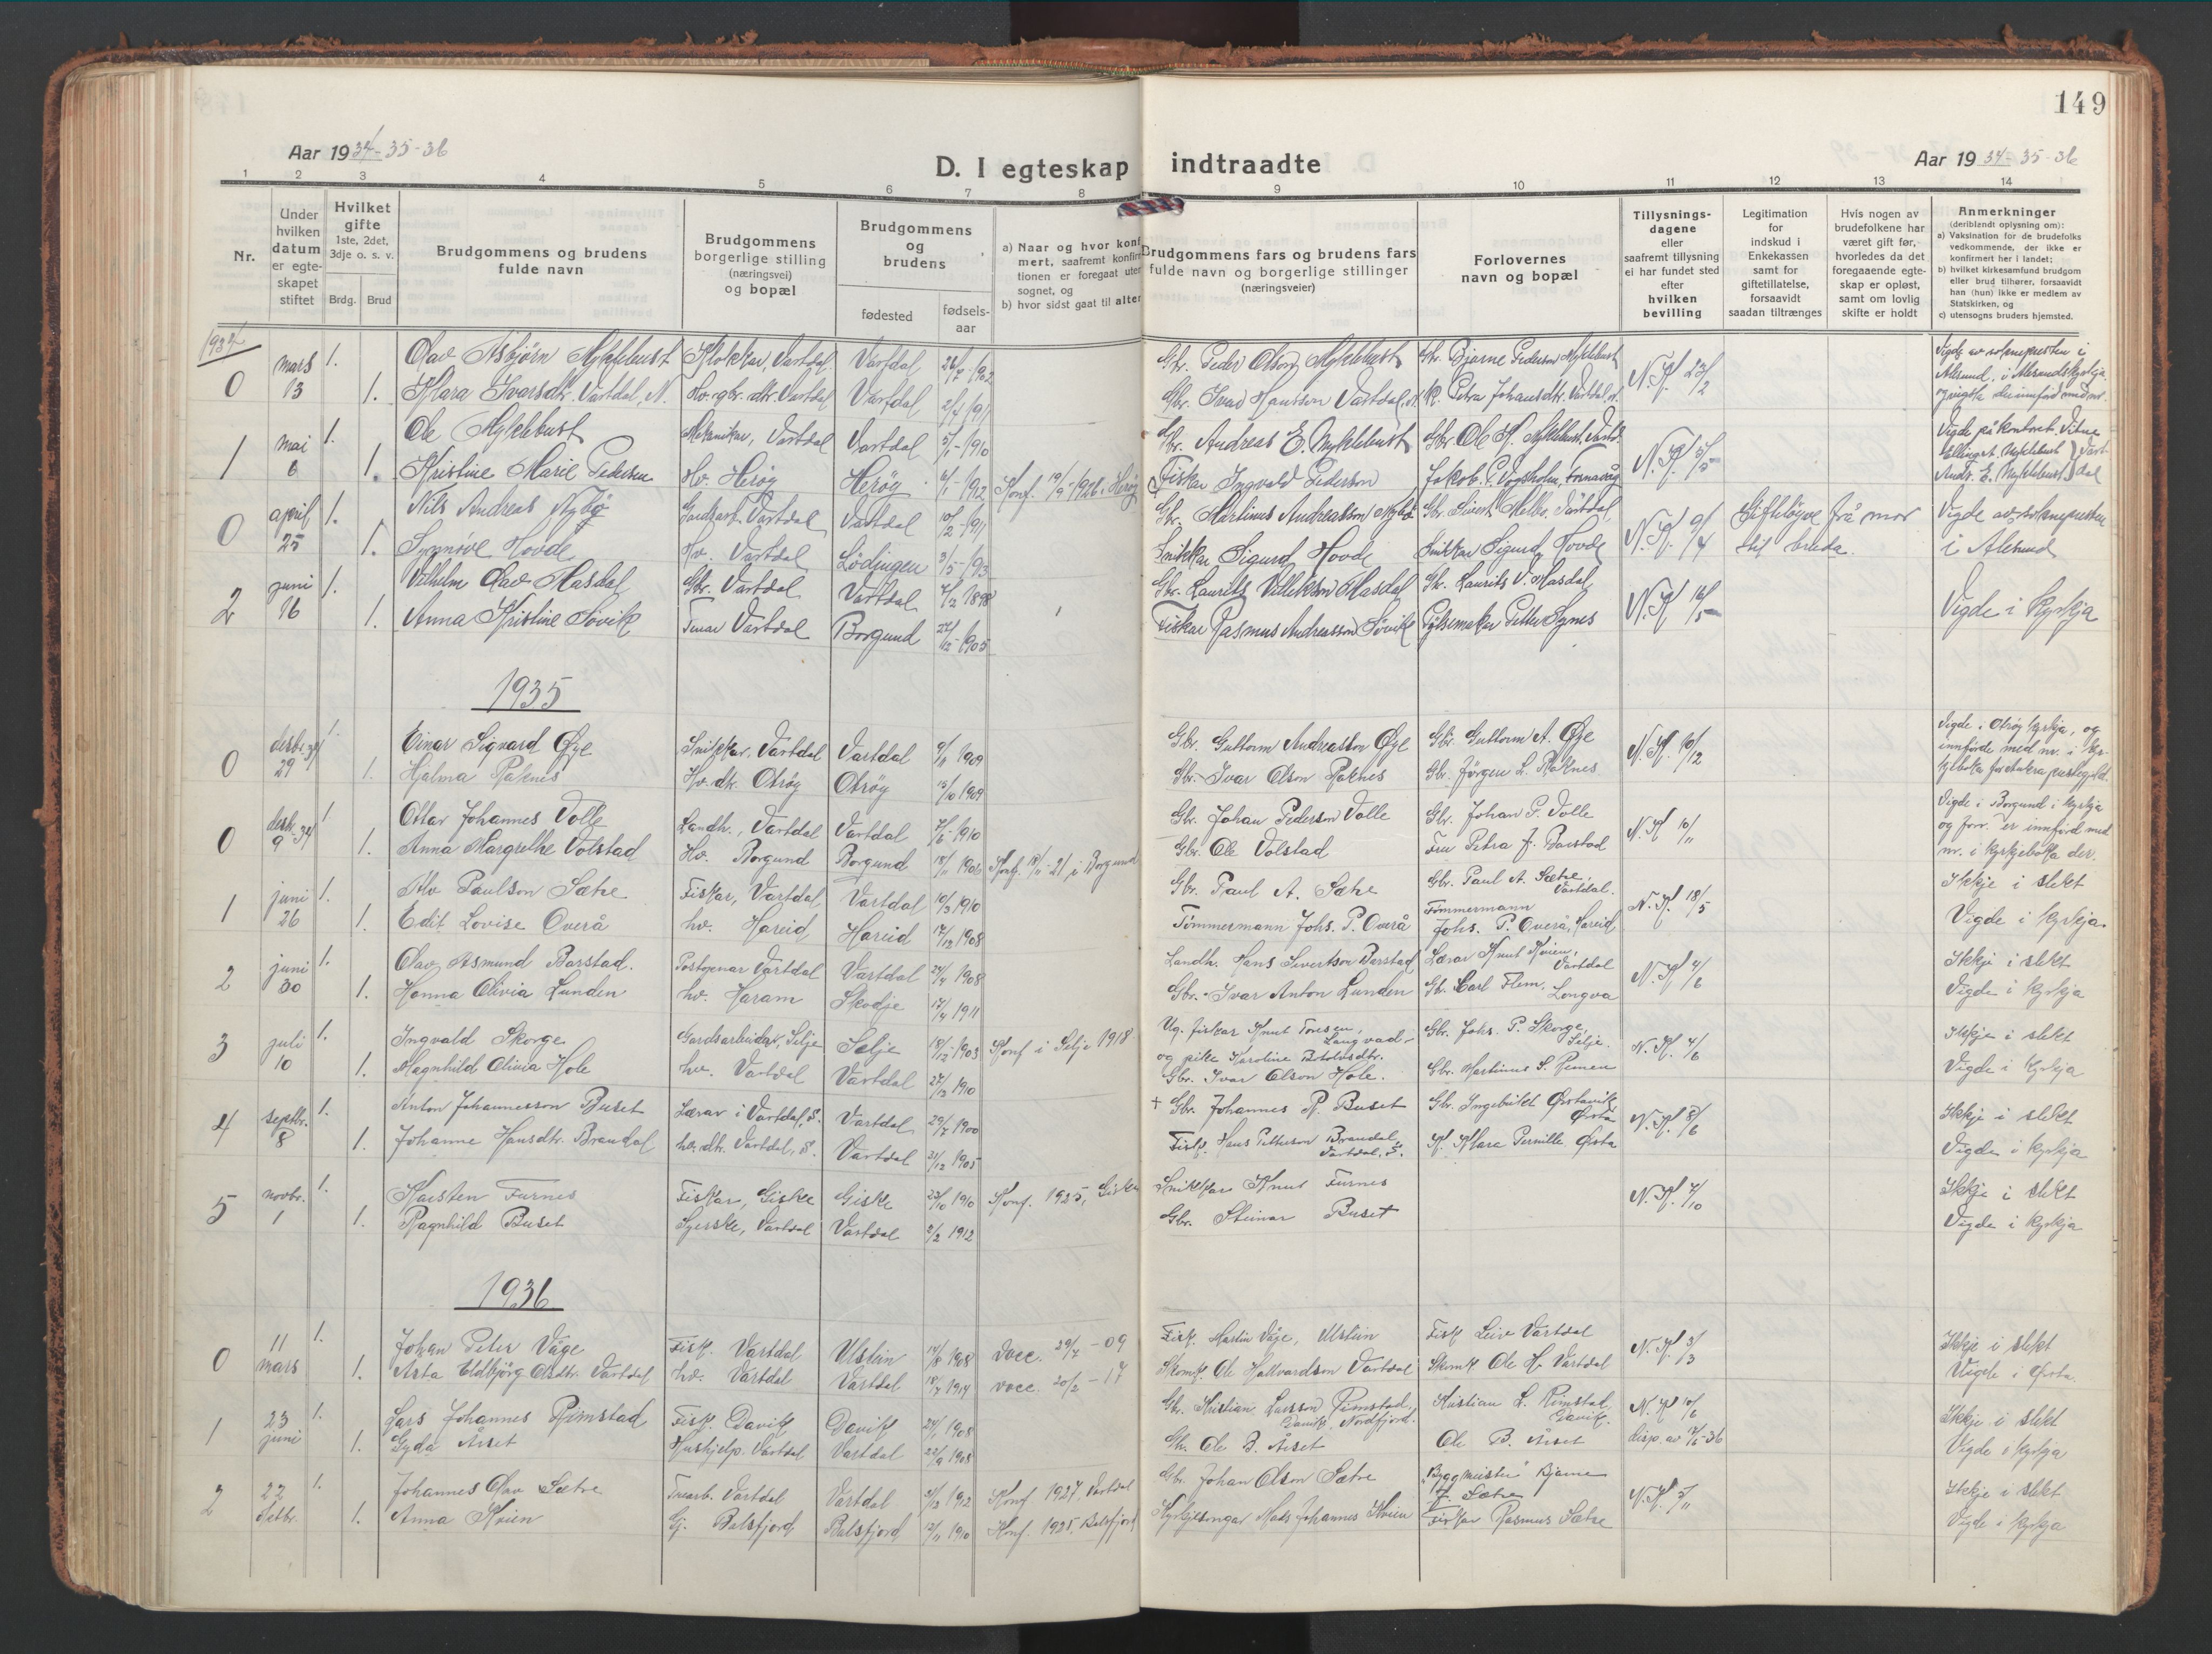 149
Aar 1934-35-36
D. I egteskap indtraadte
Aar 1934-35-36
1 2 3 4 5 6 7 8 9 10 11 12 13 14
Nr.
Under hvilken datum er egteskapet stiftet
Hvilket gifte 1ste, 2det, 3dje o. s. v.
Brdg. Brud
Brudgommens og brudens fulde navn
Brudgommens borgerlige stilling (næringsvei) og bopæl
Brudgommens og brudens
fødested
fødsels-aar
a) Naar og hvor konf
mert, saafremt konfir
tionen er foregaat uten
sognet, og
b) hvor sidst gaat til alter
Brudgommens fars og brudens fars fulde navn og borgerlige stillinger (næringsveier)
Forlovernes navn og bopæl
Tillysnings-dagene eller saafremt tillysning ei har fundet sted efter hvilken bevilling
Legitimation for indskud i Enkekassen samt for giftetillatelse, forsaavidt saadan tiltrænges
Hvis nogen av brudefolkene har været gift før, hvorledes da det foregaaende egteskap er opløst, samt om lovlig skifte er holdt
Anmerkninger
(deriblandt oplysning om):
a) Vaksination for de brudefolks vedkommende, der ikke er konfirmert her i landet;
b) hvilket kirkesamfund brudgom eller brud tilhører, forsaavidt han (hun) ikke er medlem av Statskirken, og
c) utensogns bruders hjemsted.
1934
0 mars 13 1. Olav Asbjörn Myklebust Klokkar, Vartdal Vartdal 26/7-1902 Gbr. Peder Olson Myklebust Gbr. Bjarne Pederson Myklebust N. K. 23/2 Vigde av soknepresten i Ålesund, i Ålesundskyrkja.
1. Klara Ivarsdtr. Vartdal, N. Hv. gbr. dtr. Vartdal Vartdal 2/4 1911 Gbr. Ivar Hansson Vartdal, N. K. Petra Johansdtr. Vartdal, N.
1 mai 6 1. Ole Myklebust Mekanikar, Vartdal Vartdal 5/1-1910 Gbr. Andreas E. Myklebust Gbr Ole K. Myklebust, Vartd. N. K. 5/5 Vigde på kontoret. Vitne Elling A. Myklebust
1. Kristine Marie Pedersen Hv. Herøy Herøy 6/1-1912 Konf. 19/9-1926 i Herøy Fiskar Ingvald Pederson Jakob P. Vågsholm, Fosnavåg Andr. E. Myklebust Vartdal
0 april 25 1. Nils Andreas Nybø Gardsarb. Vartdal Vartdal 10/2-1911 Gbr. Martinus Andreasson Nybø Gbr. Sivert Melbø, Vartdal N. K. 9/4 Gifteløyve frå mor Vigde av soknepresten
1. Synnøve Hovde Hv. Vartdal Lødingen 3/5-1913 Snikkar Sigurd Hovde Snikkar Sigurd Hovde til bruda. i Ålesund
2 juni 16 1. Vilhelm Olav Masdal Gbr. Vartdal Vartdal 7/12 1898 Gbr. Laurits Villekson Masdal Gbr. Laurits V. Masdal N. K. 16/5 Vigde i kyrkja
1. Anna Kristine Søvik Tenar Vartdal Borgund 27/12-1905 Fiskar Rasmus Andreasson Søvik Pølsemakar Petter Synes
1935
0 desbr. 34 29 1. Einar Sigvard Øye Snikkar, Vartdal Vartdal 9/11 1909 Gbr. Guttorm Andreasson Øye Gbr. Guttorm A. Øye N. K. 10/12 Vigde i Otrøy kyrkja, og
1. Hjalma Raknes Hv. dtr. Otrøy Otrøy 15/10 1909 Gbr. Ivar Olson Raknes Gbr. Jørgen L. Raknes innførde med nr. i kyrkjeboka for Aukra prestegjeld.
0 desbr. 34 9 1 Ottar Johannes Volle Landh., Vartdal Vartdal 7/6-1910 Gbr. Johan Pederson Volle Gbr. Johan P. Volle N. K. 10/11 Vigde i Borgund i kyrkja
1. Anna Margrethe Volstad Hv. Borgund Borgund 18/11 1906 Konf. 13/11-21 i Borgund Gbr. Ole Volstad Fru Petra J. Barstad og forr. er innførd med nr. i kyrkjeboka der.
1 juni 26 1. Alv Paulson Sætre Fiskar, Vartdal Vartdal 10/3 1910 Gbr. Paul A. Sætre Gbr. Paul A. Sætre, Vartdal. N. K. 18/5 Ikkje i slekt
1. Edit Lovise Overå hv. Hareid Hareid 17/12 1908 Tømmermann Johs. P. Overå Tømmermann Johs. P. Overå, Hareid Vigde i kyrkja.
2 juni 30 1. Olav Asmund Barstad. Postopnar Vartdal Vartdal 24/4 1908 Landh. Hans Sivertson Barstad Lærar Knut Kvien, Vartdal N. K. 4/6 Ikkje i slekt
1. Hanna Olivia Lunden hv. Haram Skodje 17/4 1911 Gbr. Ivar Anton Lunden Gbr. Carl Flem, Longva Vigde i kyrkja
3 juli 10 1. Ingvald Skorge Gardsarbeidar, Selje Selje 18/12 1903 Konf i Selje 1918 Ug. fiskar Knut Toresen, Langvad og pike Karoline Botolvsdtr. Gbr. Johs. P. Skorge, Selje. N. K. 4/6 Ikkje i slekt
1. Magnhild Olivia Hole hv. Vartdal Vartdal 27/3 1910 Gbr. Ivar Olson Hole. Gbr. Martinus S. Remen Vigde i kyrkja
4 septbr. 8 1. Anton Johannesson Buset Lærar i Vartdal, S. Vartdal 29/7 1900 + Gbr. Johannes R. Buset Gbr. Ingebrikt Ørstavik Ørsta N. K. 8/6 Ikkje i slekt
1. Johanne Hansdtr. Brandal hv. dtr. Vartdal, S. Vartdal 31/12 1905 Fisk. Hans Petterson Brandal, Vartdal, S. K. Klara Pernille Ørsta Vigde i kyrkja
5 novbr. 1 1. Karsten Furnes Fiskar, Giske Giske 23/10 1910 Konf. 1925, Giske Snikkar Knut Furnes N. K. 7/10 Ikkje i slekt
1. Ragnhild Buset Syerske, Vartdal Vartdal 2/2 1912 Gbr. Steinar Buset Vigde i kyrkja
1936
0 11 mars 1. Johan Peter Våge Fisk. Vartdal Ulstein 14/8 1908 vacc. 29/7-09 Fisk. Martin Våge, Ulstein Fisk Leiv Vartdal N. K. 3/3 Ikkje i slekt
1. Asta Eldbjørg Olsdtr. Vartdal hv. Vartdal Vartdal 18/7 1914 vacc. 20/2-17 Skomk. Ole Hallvardson Vartdal Skomk Ole H. Vartdal Vigde i Ørsta.
1 23 juni 1. Lars Johannes Rimstad Fisk. Davik Davik 24/1 1908 Gbr. Kristian Larsson Rimstad, Davik, Nordfjord. Kristian L. Rimstad, Davik. N. K. 10/6 Ikkje i slekt
1. Gyda Årset Hushjelp. Vartdal Vartdal 22/9 1908 Gbr. Ole B. Årset Ole B. Årset disp. av 17/6-36 Vigde i kyrkja
2 22 1. Johannes Olav Sætre Trearb. Vartdal Vartdal 31/3 1912 Konf 1927, Vartdal Gbr. Johan Olson Sætre Byggmeister Bjarne J. Sætre N. K. 5/11 Ikkje i slekt
1. Anna Kvien Gj. Balsfjord Balsfjord 12/11 1910 Konf. 1925, Balsfjord Kyrkjesongar Mads Johannes Kvien Fiskar Rasmus Sætre Vigde i kyrkja